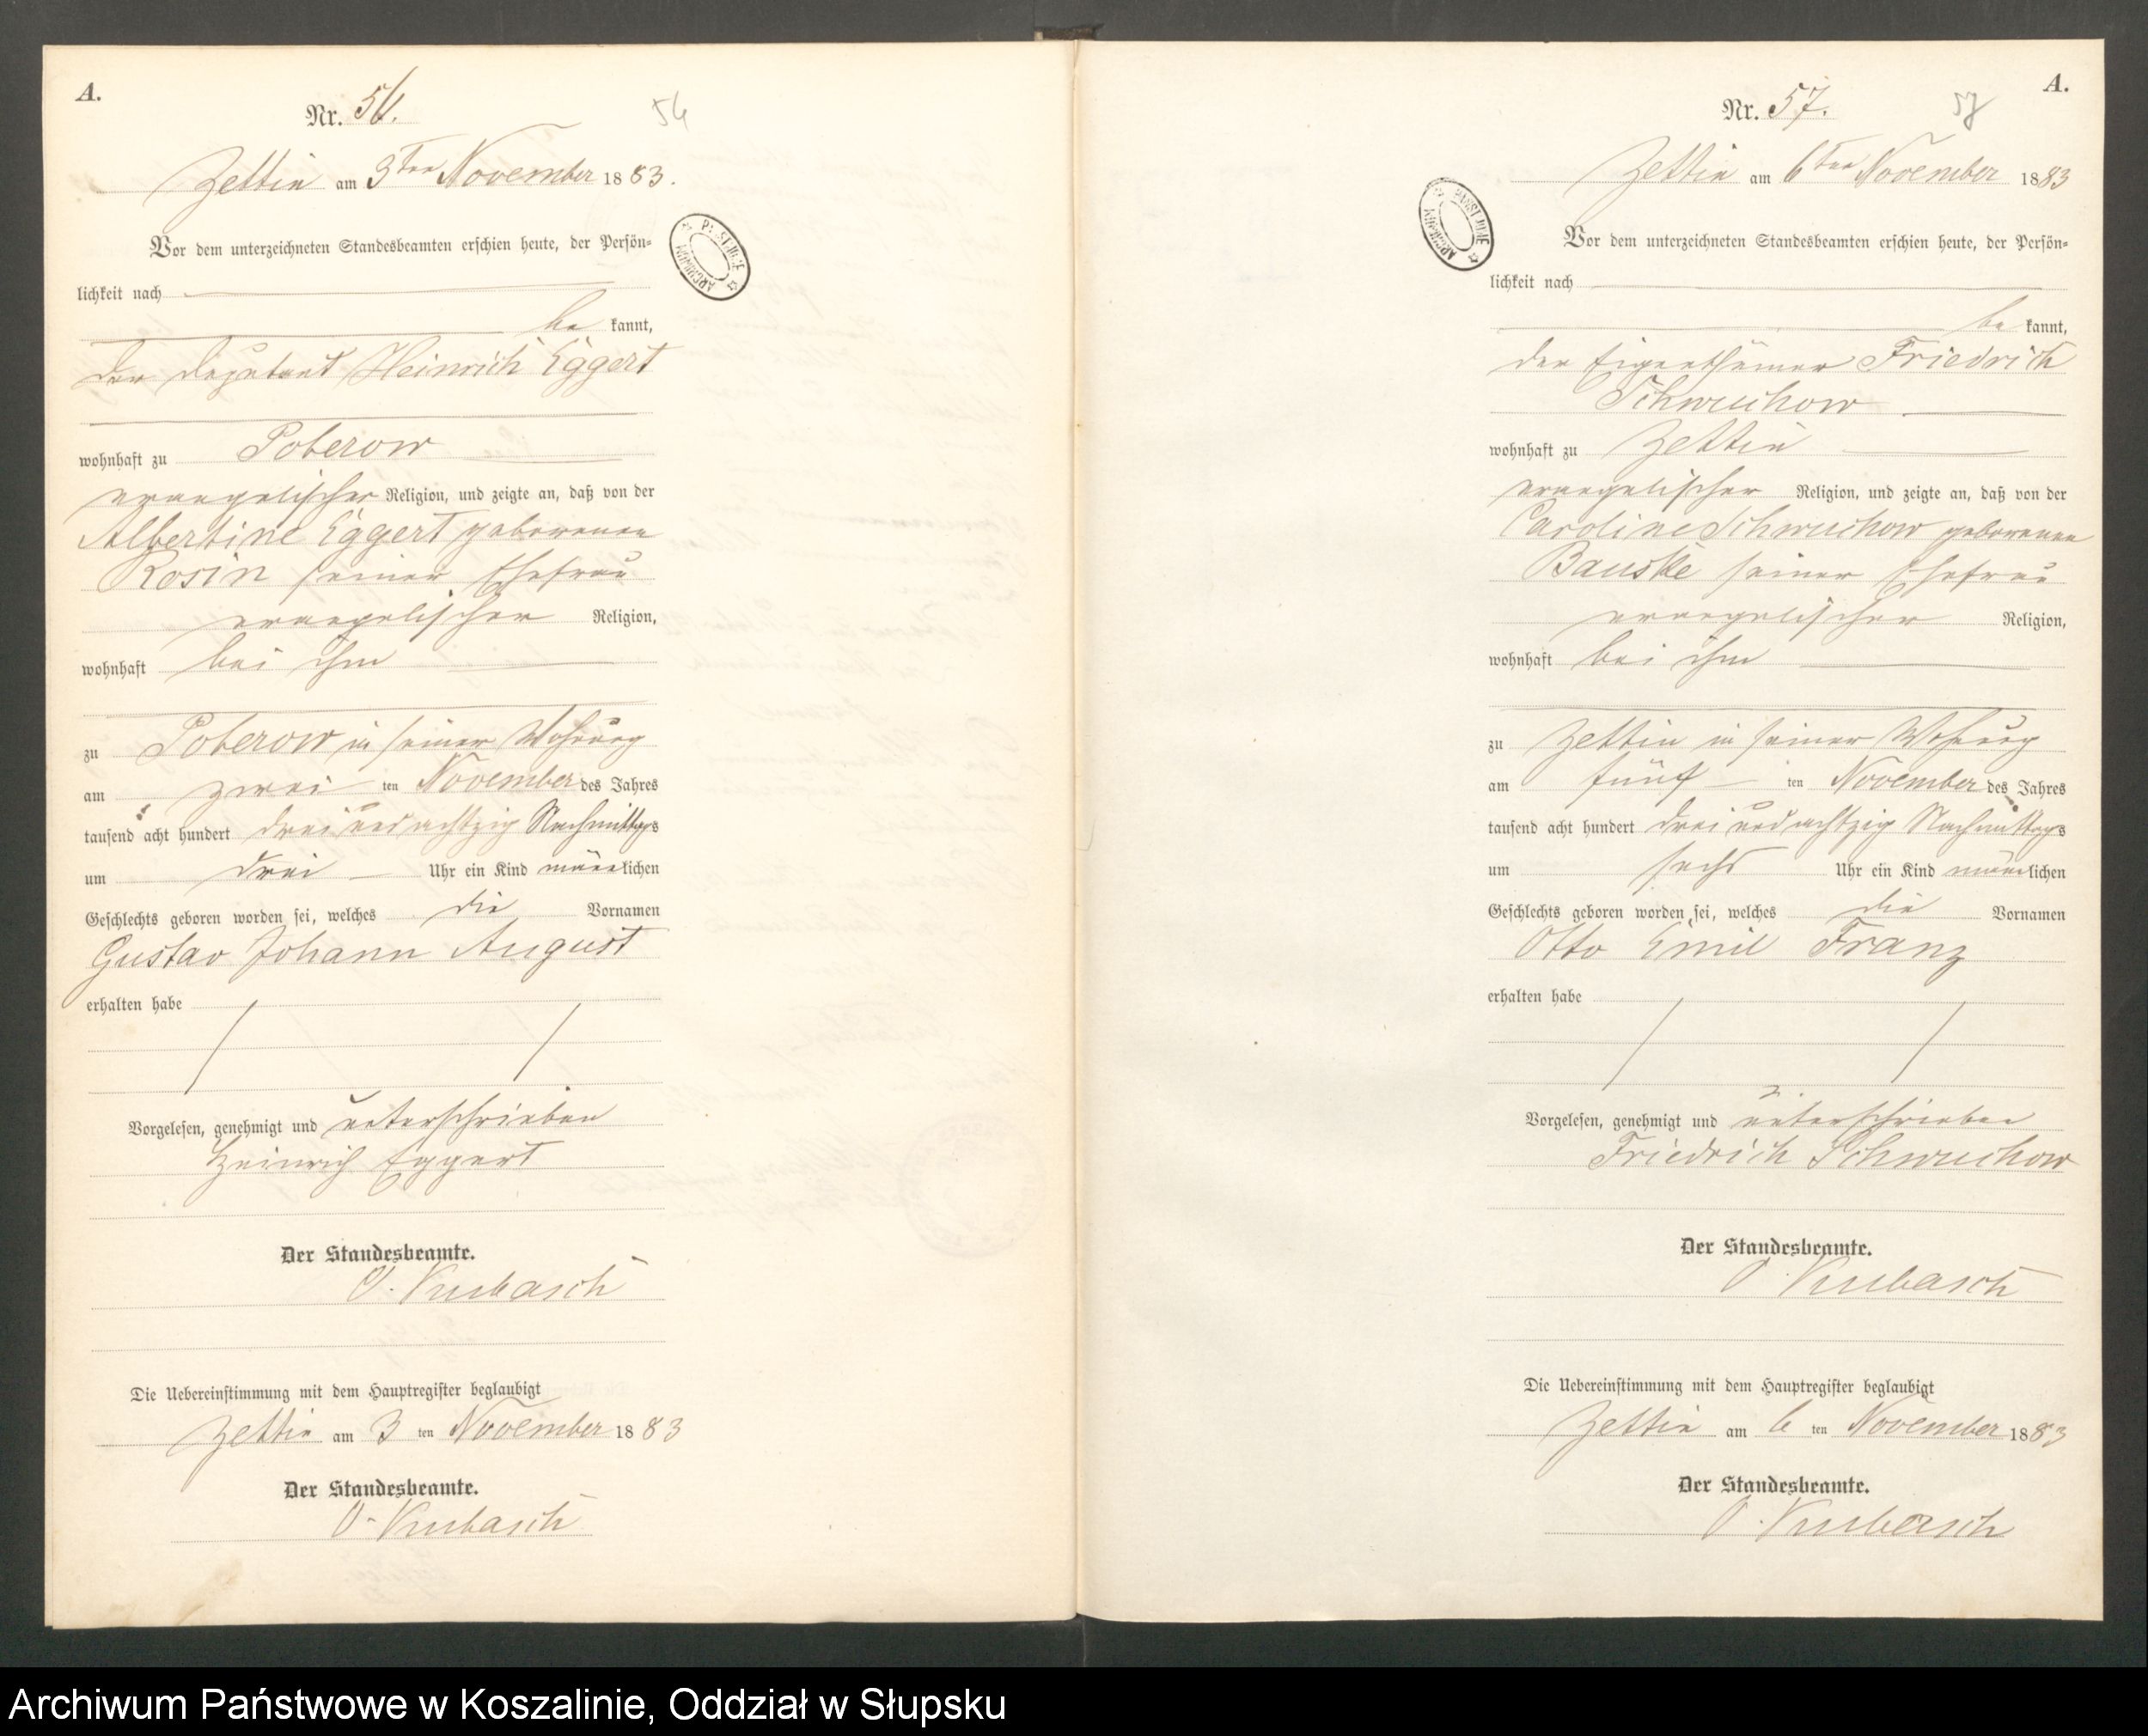 A.
Nr. 56.
56
Zettin am 3ten November 1883.
Vor dem unterzeichneten Standesbeamten erschien heute, der Persön-
lichkeit nach
be kannt,
der Deputant Heinrich Eggert
wohnhaft zu Poberow
evangelischer Religion, und zeigte an, daß von der
Albertine Eggert geborenen
Rosin seiner Ehefrau
evangelischer Religion,
wohnhaft bei ihm
zu Poberow in seiner Wohnung
am zwei ten November des Jahres
tausend acht hundert drei und achtzig Nachmittags
um drei Uhr ein Kind männlichen
Geschlechts geboren worden sei, welches die Vornamen
Gustav Johann August
erhalten habe
Vorgelesen, genehmigt und unterschrieben
Heinrich Eggert
Der Standesbeamte.
O. Kubasch
Die Uebereinstimmung mit dem Hauptregister beglaubigt
Zettin am 3 ten November 1883
Der Standesbeamte.
O. Kubasch
A.
Nr. 57.
57
Zettin am 6ten November 1883
Vor dem unterzeichneten Standesbeamten erschien heute, der Persön-
lichkeit nach
be kannt,
der Eigenthümer Friedrich
Schwuchow
wohnhaft zu Zettin
evangelischer Religion, und zeigte an, daß von der
Caroline Schwuchow geborenen
Bauske seiner Ehefrau
evangelischer Religion,
wohnhaft bei ihm
zu Zettin in seiner Wohnung
am fünf ten November des Jahres
tausend acht hundert drei und achtzig Nachmittags
um sechs Uhr ein Kind männlichen
Geschlechts geboren worden sei, welches die Vornamen
Otto Emil Franz
erhalten habe
Vorgelesen, genehmigt und unterschrieben
Friedrich Schwuchow
Der Standesbeamte.
O. Kubasch
Die Uebereinstimmung mit dem Hauptregister beglaubigt
Zettin am 6 ten November 1883
Der Standesbeamte.
O. Kubasch
Archiwum Państwowe w Koszalinie, Oddział w Słupsku